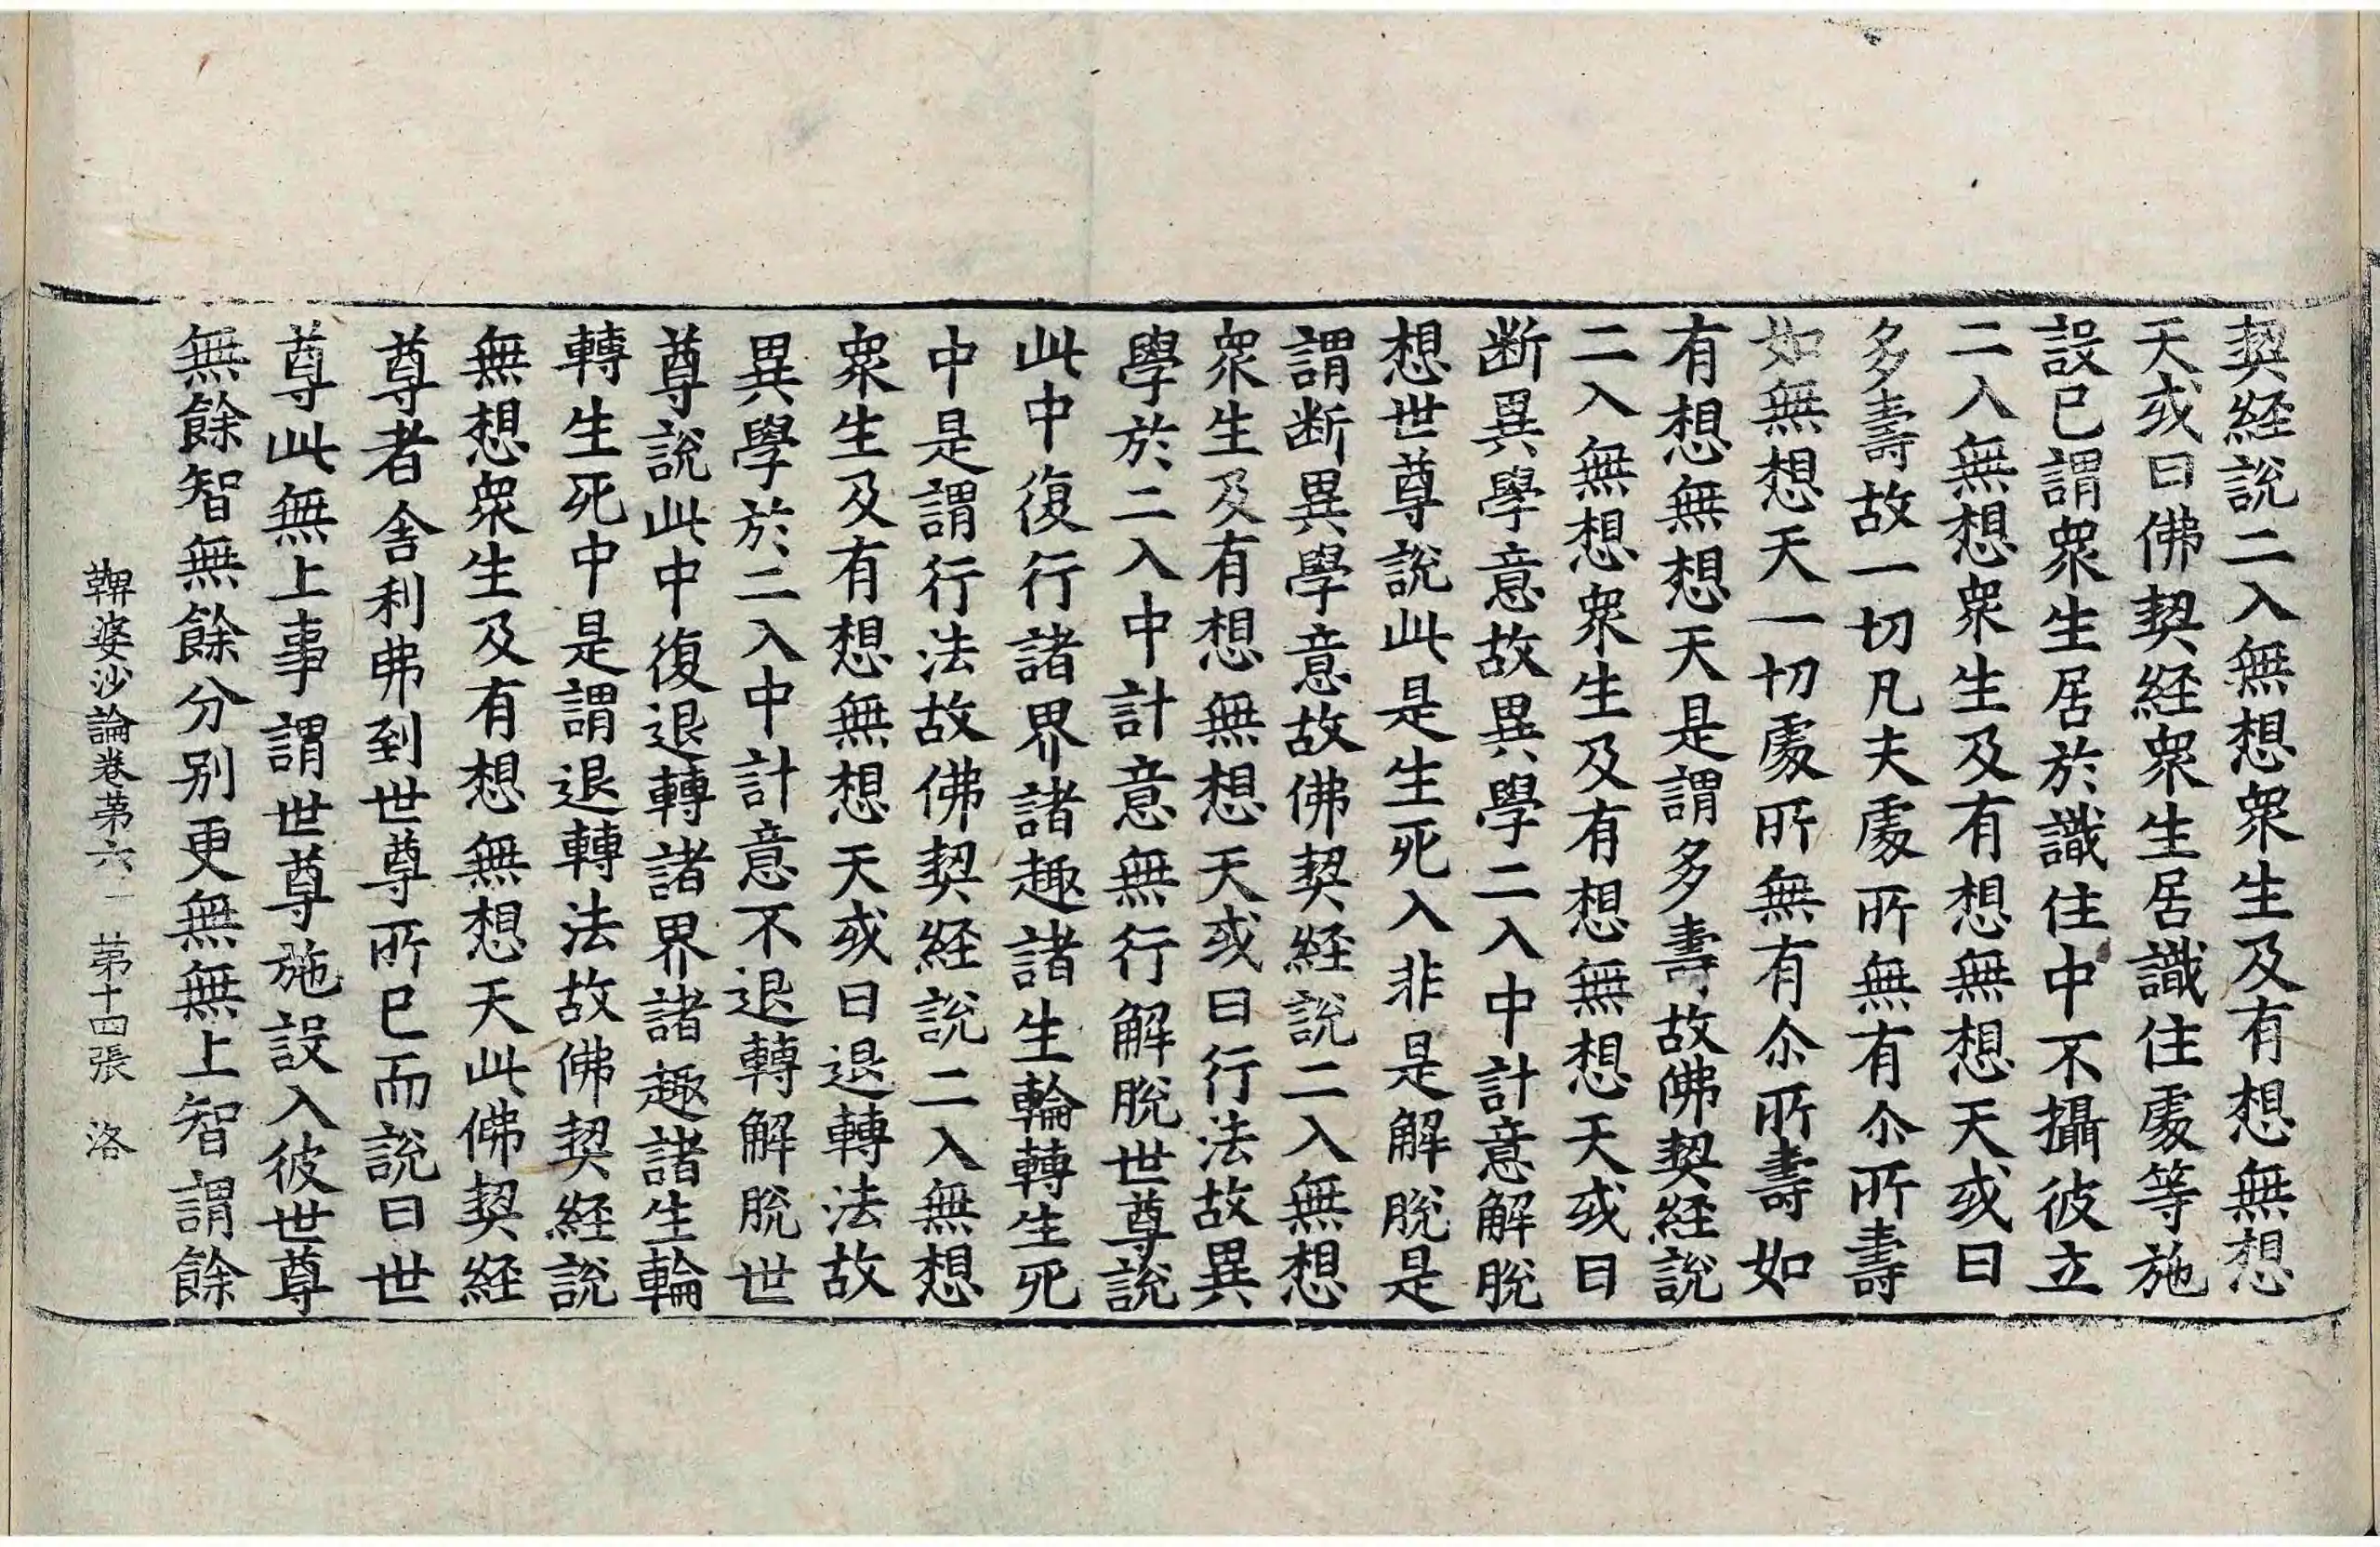 契経說二入無想衆生及有想無想
天或曰佛契経衆生居識住處等施
設已謂衆生居於識住中不攝彼立
二入無想衆生及有想無想天或曰
多壽故一切凡夫處所無有尒所壽
如無想天一切處所無有尒所壽如
有想無想天是謂多壽故佛契経說
二入無想衆生及有想無想天或曰
断異學意故異學二入中計意解脫
想世尊說此是生死入非是解脫是
謂断異學意故佛契経說二入無想
衆生及有想無想天或曰行法故異
學於二入中計意無行解脫世尊說
此中復行諸界諸趣諸生輪轉生死
中是謂行法故佛契経說二入無想
衆生及有想無想天或曰退轉法故
異學於二入中計意不退轉解脫世
尊說此中復退轉諸界諸趣諸生輪
轉生死中是謂退轉法故佛契経說
無想衆生及有想無想天此佛契経
尊者舍利弗到世尊所已而說曰世
尊此無上事謂世尊施設入彼世尊
無餘智無餘分別更無無上智謂餘
鞞婆沙論卷苐六 苐十四張 洛